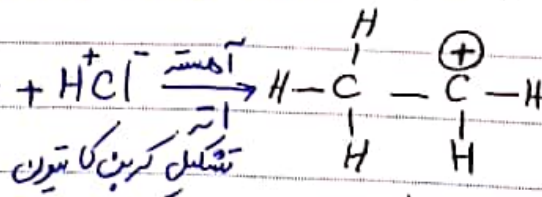 H
+ H⁺Cl⁻ آهسته → H – C – C⊕ – H
H H
تشکیل کربن کاتیون